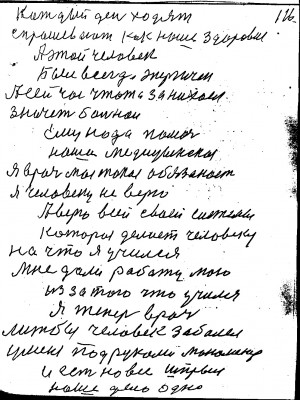 116.
Каждый ден ходят
спрашевают как наше здоровье
А этой человек
Был всегда энергичен
А сейчас чтото занихал
значет болной
Ему нада помоч
наша медицинская
Я врач моя такая обязаност
Я человеку не верю
А верю всей своей системы
Которая делает человеку
на что я учился
Мне дали работу мою
из за того что учился
Я тепер врач
литбы человек заболел
у меня подрукой
и ест новые шприцы
наше дело одно